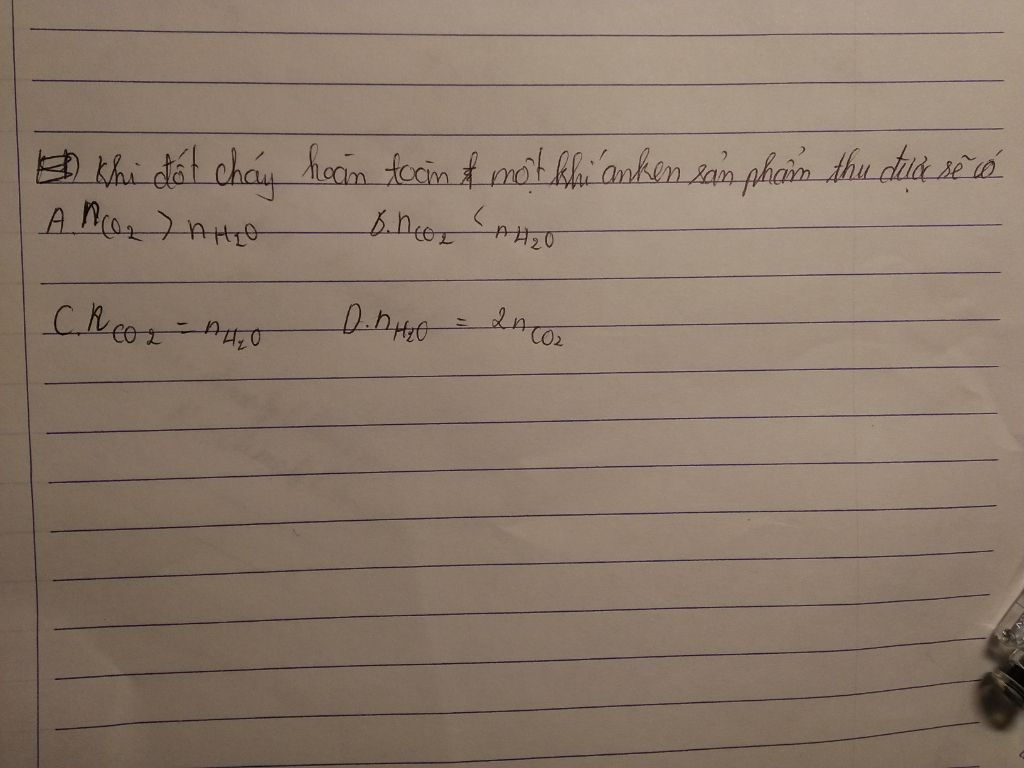 Khi đốt cháy hoàn toàn một khí anken sản phẩm thu được sẽ có
A. nCO2 > nH2O B. nCO2 < nH2O
C. nCO2 = nH2O D. nH2O = 2nCO2